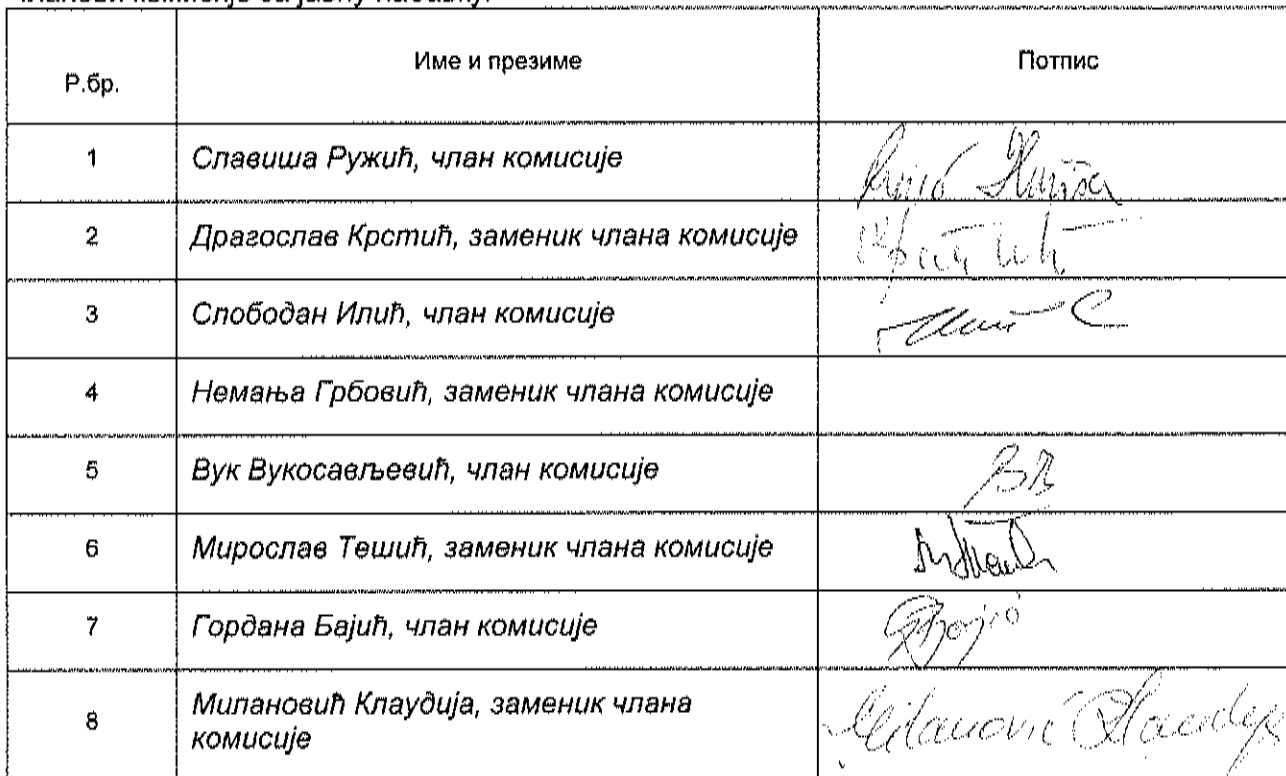 Р.бр. Име и презиме Потпис
1 Славиша Ружић, члан комисије
2 Драгослав Крстић, заменик члана комисије
3 Слободан Илић, члан комисије
4 Немања Грбовић, заменик члана комисије
5 Вук Вукосављевић, члан комисије ВВ
6 Мирослав Тешић, заменик члана комисије
7 Гордана Бајић, члан комисије
8 Милановић Клаудија, заменик члана
комисије Milanović